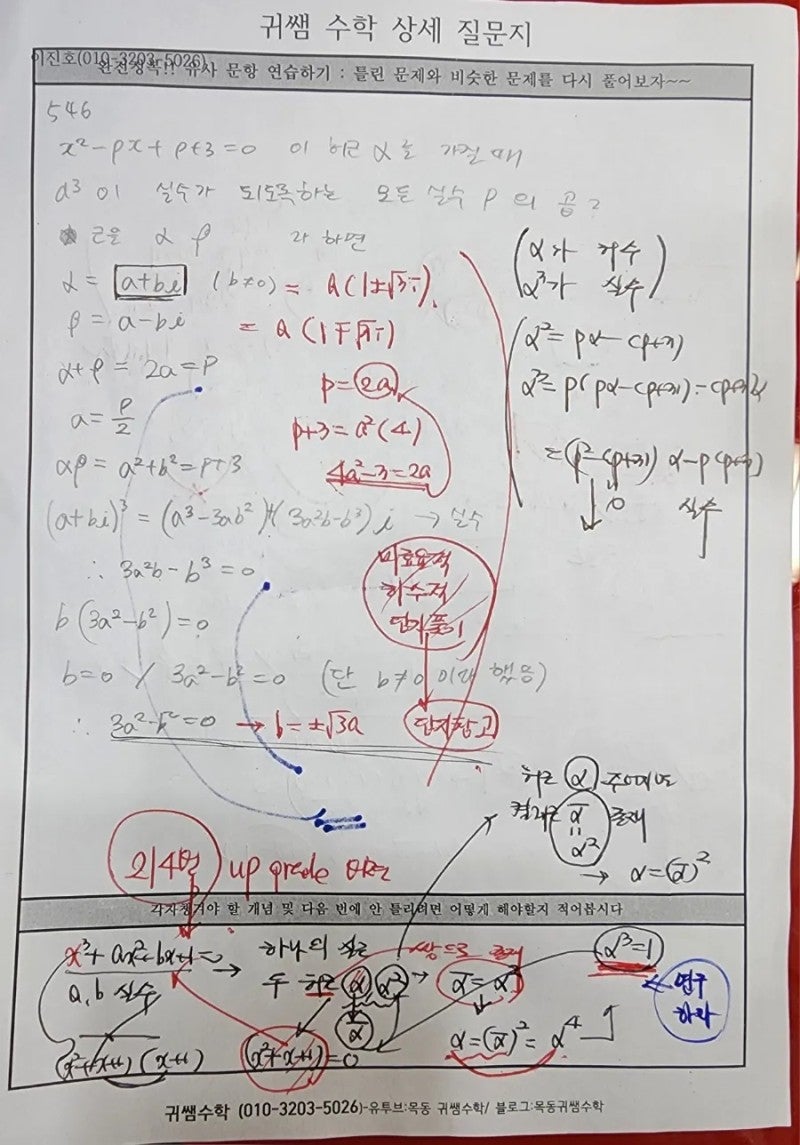 귀쌤 수학 상세 질문지
이진호(010-3203-5026)
완전정복!! 유사 문항 연습하기 : 틀린 문제와 비슷한 문제를 다시 풀어보자~~
546
x²-px+p+3=0 이 허근 α를 가질 때
α³ 이 실수가 되도록하는 모든 실수 p 의 곱?
근을 α β 라 하면
α = a+bi (b≠0) = a(1±√3i)
β = a-bi = a(1∓√3i)
α+β = 2a = p
p=2a
a = p/2
p+3=a²(4)
αβ = a²+b² = p+3
4a²-3=2a
(a+bi)³ = (a³-3ab²)+(3a²b-b³)i → 실수
∴ 3a²b-b³=0
b(3a²-b²)=0
b=0 3a²-b²=0 (단 b≠0 이라 했음)
∴ 3a²-b²=0 → b=±√3a
(α가 허수
α³가 실수)
α²=pα-(p+3)
α³=p(pα-(p+3))-(p+3)α
=(p²-(p+3))α-p(p+3)
0 실수
비효율적
답지참고
허근 α
켤레근 ᾱ 존재
=
α²
→ α=(ᾱ)²
214번 up grade 버전
각자챙겨야 할 개념 및 다음 번에 안 틀리려면 어떻게 해야할지 적어봅시다
x³+ax²+bx+1=0 → 하나의 실근
a,b 실수
두 허근 α α² → ᾱ=α²
ᾱ
α=(ᾱ)²=α⁴
α³=1
← 연구하라
(x²+x+1)=0
귀쌤수학 (010-3203-5026)-유투브:목동 귀쌤수학/ 블로그:목동귀쌤수학